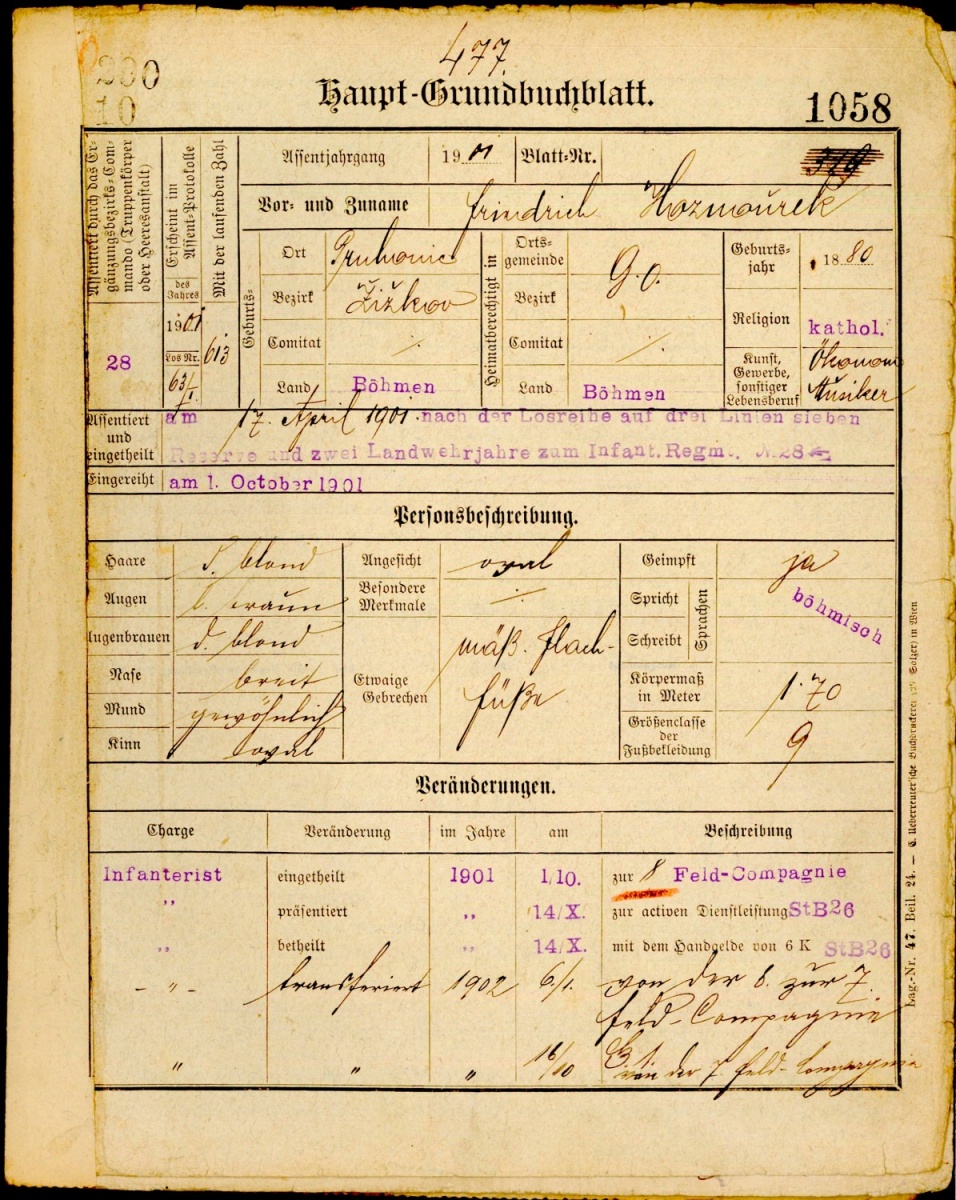 477.
200
10
Haupt-Grundbuchblatt.
1058
Assentiert durch das Ergänzungsbezirks-Commando (Truppenkörper oder Heeresanstalt)
28
Erscheint im Assent-Protokolle
des Jahres
1901
Los Nr.
63/1.
Mit der laufenden Zahl
613
Assentjahrgang 1901 Blatt-Nr. 379
Vor- und Zuname Friedrich Hozmourek
Geburts-
Ort Pruhonic
Bezirk Žižkov
Comitat ·/.
Land Böhmen
Heimatberechtigt in
Ortsgemeinde G. o.
Bezirk
Comitat ·/.
Land Böhmen
Geburtsjahr 1880
Religion kathol.
Kunst, Gewerbe, sonstiger Lebensberuf Ökonom Musiker
Assentiert und eingetheilt am 17. April 1901 nach der Losreihe auf drei Linien sieben
Reserve und zwei Landwehrjahre zum Infant. Regmt. № 28
Eingereiht am 1. October 1901
Personsbeschreibung.
Haare d. blond
Augen b. braun
Augenbrauen d. blond
Nase breit
Mund gewöhnlich
Kinn oval
Angesicht oval
Besondere Merkmale ·/.
Etwaige Gebrechen mäß. Flach-
füße
Geimpft ja
Spricht
Schreibt
Sprachen
böhmisch
Körpermaß in Meter 1·70
Größenclasse der Fußbekleidung 9
Veränderungen.
Charge Veränderung im Jahre am Beschreibung
Infanterist eingetheilt 1901 1/10. zur 8 Feld-Compagnie
,, präsentiert ,, 14/X. zur activen Dienstleistung StB26
,, betheilt ,, 14/X. mit dem Handgelde von 6 K StB26
– „ – transferiert 1902 6/1. von der 8. zur 7.
Feld-Compagnie
„ „ „ 16/10 von der 7. Feld-Compagnie
Lag.-Nr. 47. Beil. 24. — C. Ueberreuter'sche Buchdruckerei (M. Salzer) in Wien